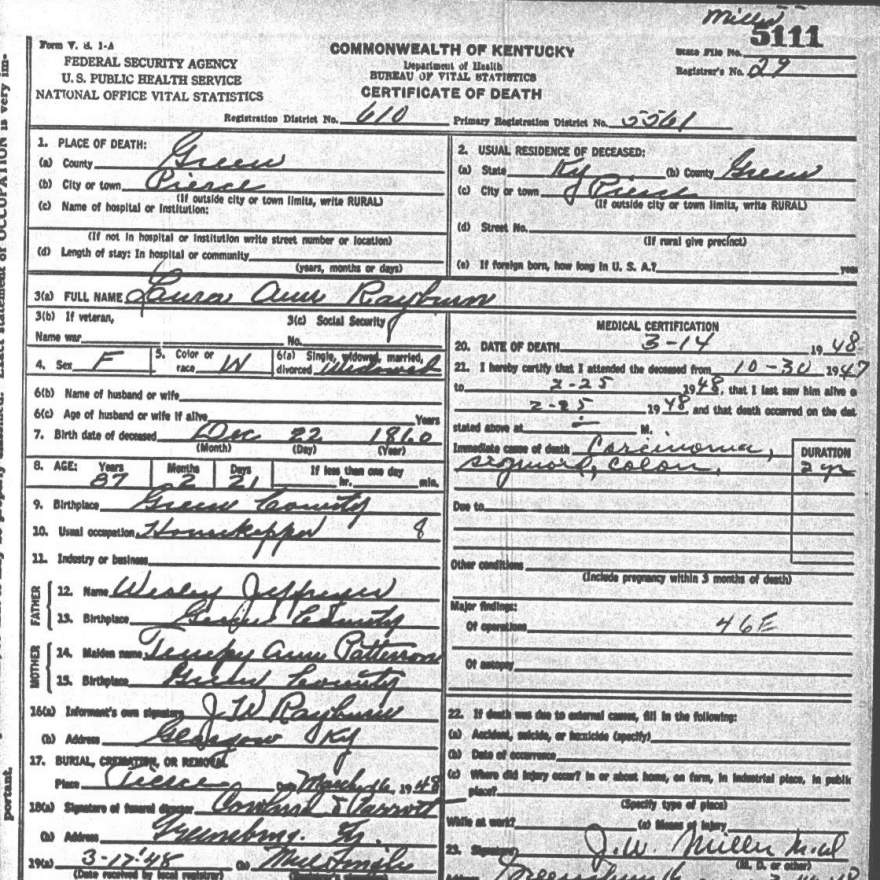 Miller
5111
Form V. S. 1-A
FEDERAL SECURITY AGENCY
U. S. PUBLIC HEALTH SERVICE
NATIONAL OFFICE VITAL STATISTICS
COMMONWEALTH OF KENTUCKY
Department of Health
BUREAU OF VITAL STATISTICS
CERTIFICATE OF DEATH
State File No.
Registrar's No. 29
Registration District No. 610 Primary Registration District No. 5561
1. PLACE OF DEATH:
(a) County Green
(b) City or town Pierce
(If outside city or town limits, write RURAL)
(c) Name of hospital or institution:
(If not in hospital or institution write street number or location)
(d) Length of stay: In hospital or community
(years, months or days)
2. USUAL RESIDENCE OF DECEASED:
(a) State Ky (b) County Green
(c) City or town Pierce
(If outside city or town limits, write RURAL)
(d) Street No.
(If rural give precinct)
(e) If foreign born, how long in U. S. A.? years
3(a) FULL NAME Laura Ann Rayburn
3(b) If veteran, 3(c) Social Security
Name war No.
4. Sex F 5. Color or race W 6(a) Single, widowed, married, divorced Widowed
6(b) Name of husband or wife
6(c) Age of husband or wife if alive Years
7. Birth date of deceased Dec 22 1860
(Month) (Day) (Year)
8. AGE: Years Months Days If less than one day
87 2 21 hr. min.
9. Birthplace Green County
10. Usual occupation Housekeeper 8
11. Industry or business
FATHER
12. Name Wesley Jeffries
13. Birthplace Green County
MOTHER
14. Maiden name Tempy Ann Patterson
15. Birthplace Green County
16(a) Informant's own signature J. W. Rayburn
(b) Address Glasgow Ky
17. BURIAL, CREMATION, OR REMOVAL
Place Pierce on March 16, 1948
18(a) Signature of funeral director Cowherd & Parrott
(b) Address Greensburg. Ky.
19(a) 3-17-48 (b)
(Date received by local registrar)
MEDICAL CERTIFICATION
20. DATE OF DEATH 3-14 1948
21. I hereby certify that I attended the deceased from 10-30 1947
to 2-25 1948, that I last saw him alive o
2-25 1948 and that death occurred on the dat
stated above at M.
Immediate cause of death Carcinoma, DURATION
sigmoid, colon, 2 yr
Due to
Other conditions
(Include pregnancy within 3 months of death)
Major findings:
Of operations 46E
Of autopsy
22. If death was due to external causes, fill in the following:
(a) Accident, suicide, or homicide (specify)
(b) Date of occurrence
(c) Where did injury occur? In or about home, on farm, in industrial place, in public
place?
(Specify type of place)
While at work? (e) Means of injury
23. Signature J. W. Miller M.D.
(M. D. or other)
portant.